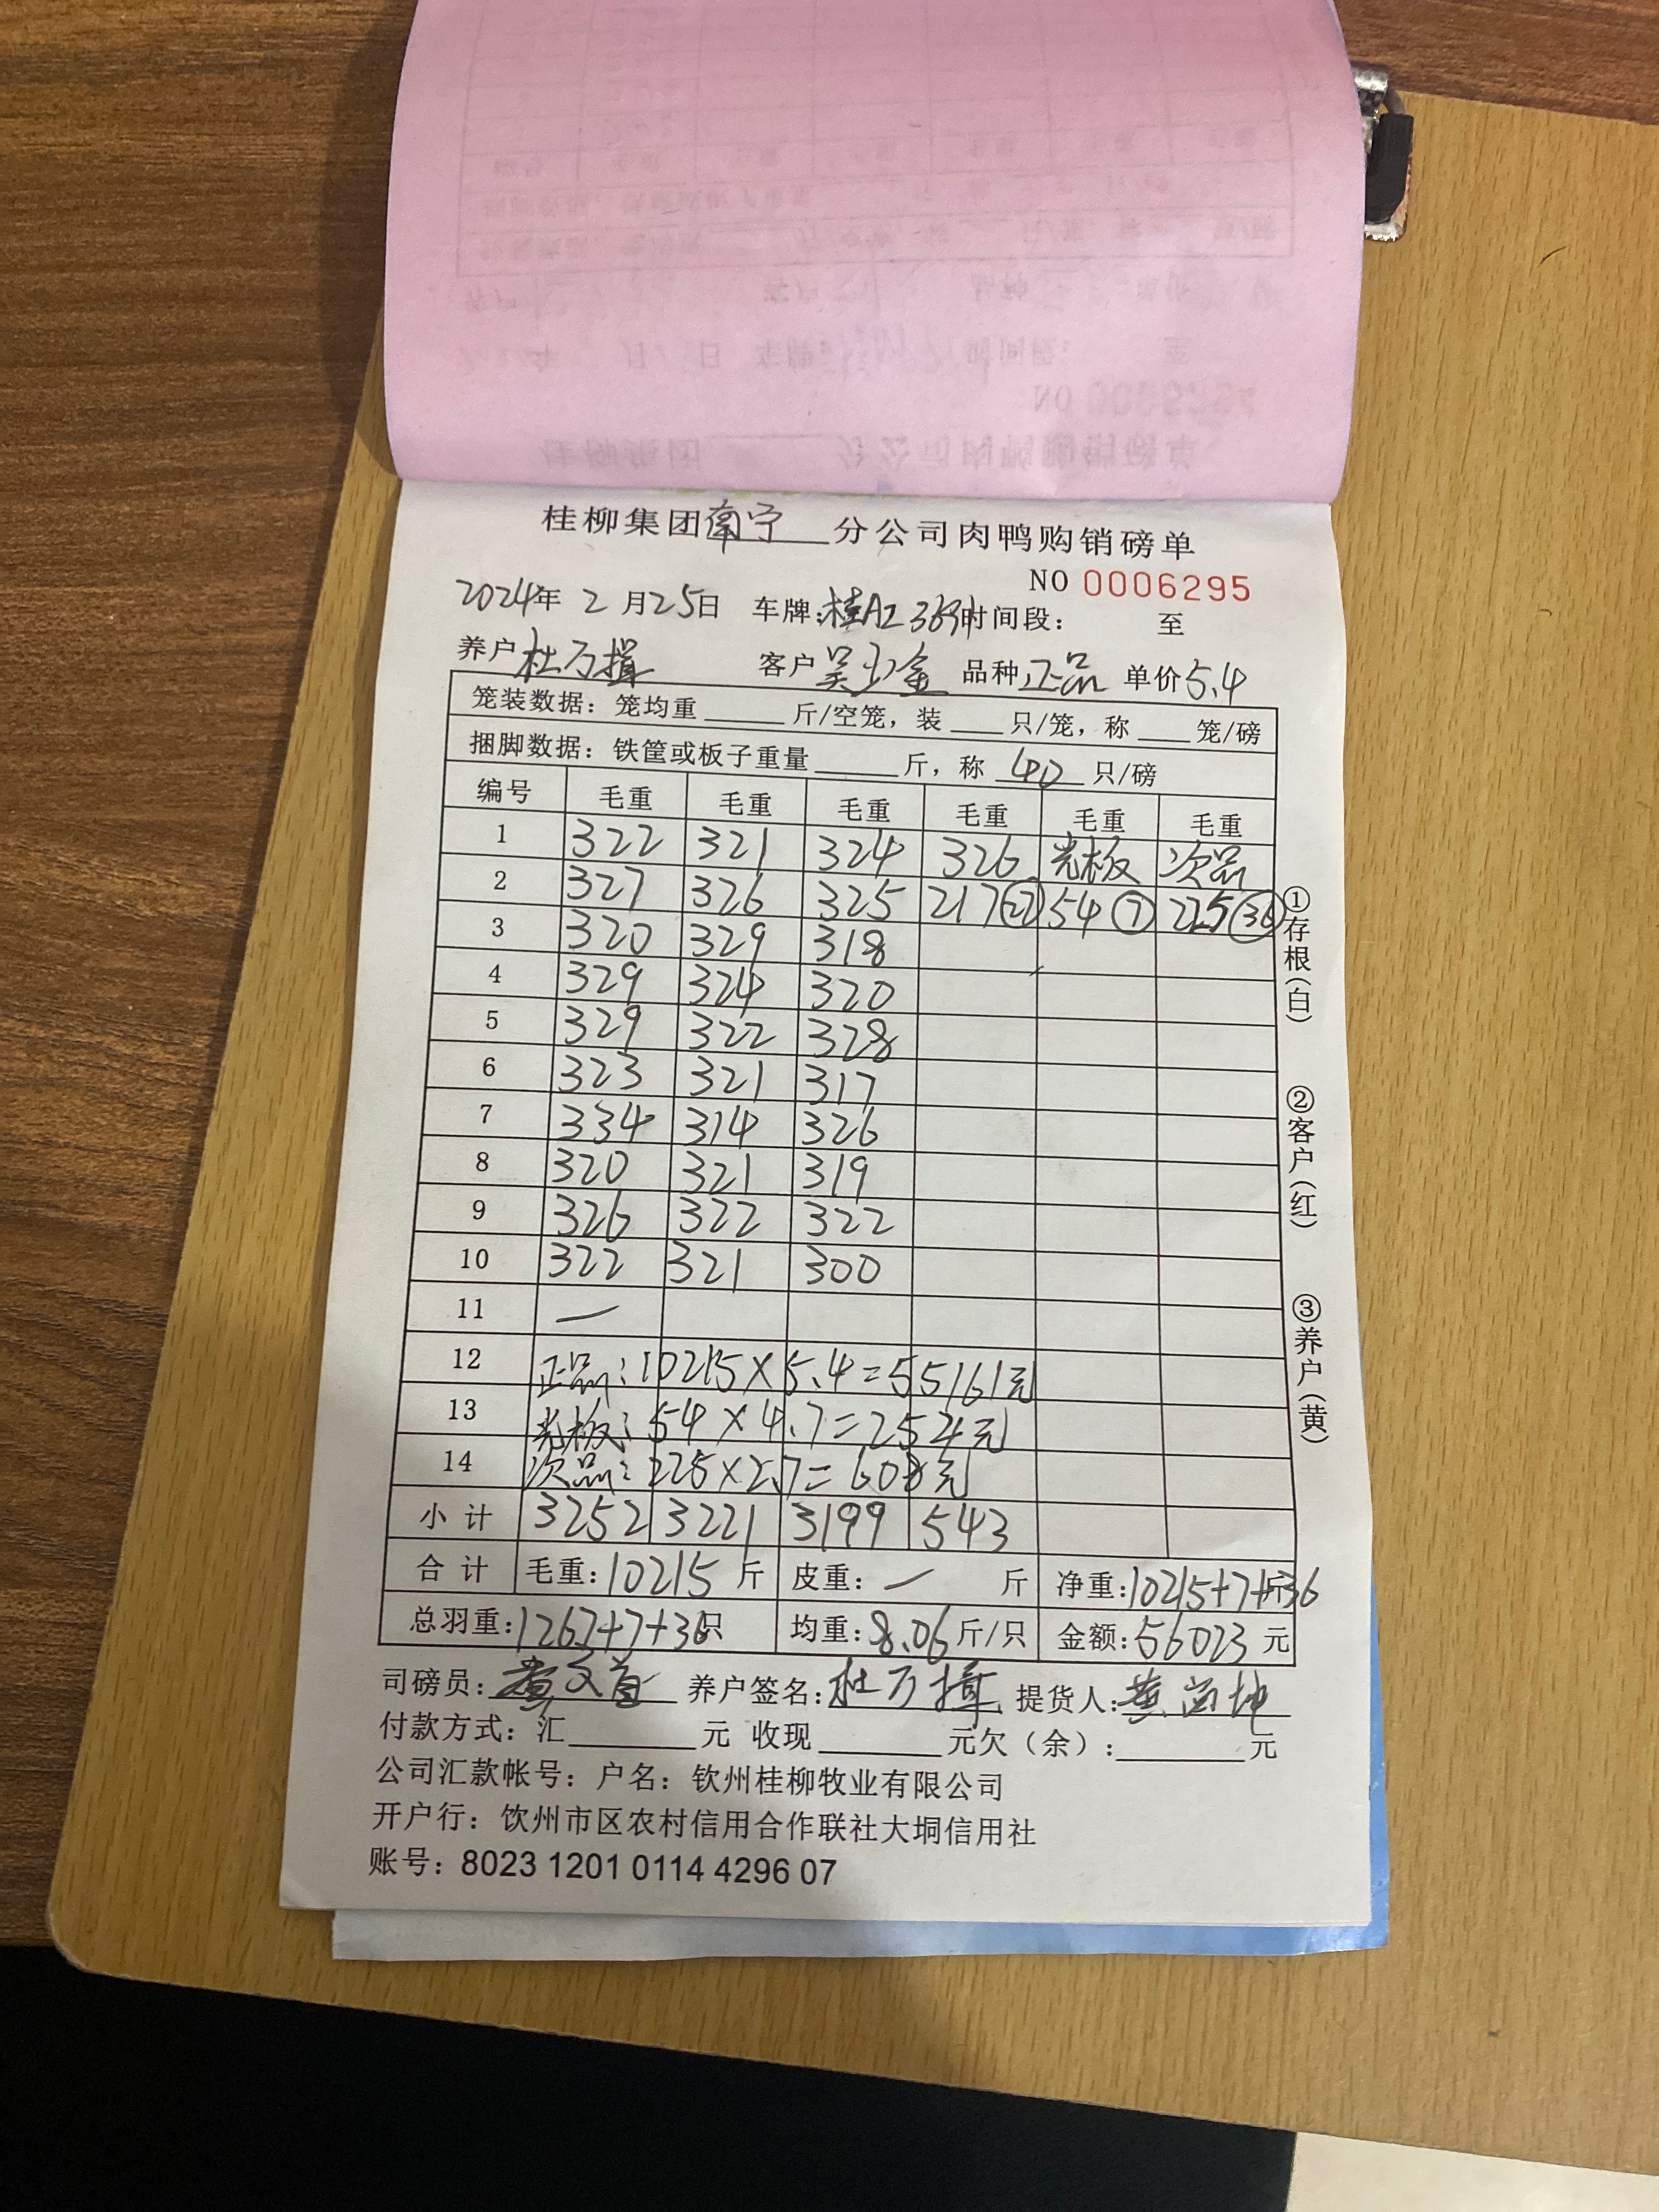 桂柳集团南宁分公司肉鸭购销磅单
NO 0006295
2024年 2月25日 车牌: 时间段: 至
养户 杜万 客户 吴 金 品种 正品 单价 5.4
笼装数据: 笼均重 斤/空笼, 装 只/笼, 称 笼/磅
捆脚数据: 铁筐或板子重量 斤, 称 40 只/磅
编号 毛重 毛重 毛重 毛重 毛重 毛重
1 322 321 324 326 光板 次品
2 327 326 325 217(27) 54(7) 225(36)
3 320 329 318
4 329 324 320
5 329 322 328
6 323 321 317
7 334 314 326
8 320 321 319
9 326 322 322
10 322 321 300
11 —
12 正品: 10215×5.4=55161元
13 光板: 54×4.7=254元
14 次品: 225×2.7=608元
小计 3252 3221 3199 543
合计 毛重: 10215 斤 皮重: — 斤 净重: 10215+7+36 斤
总羽重: 1267+7+36 只 均重: 8.06 斤/只 金额: 56023 元
司磅员: 养户签名: 杜万 提货人: 黄
付款方式: 汇 元 收现 元欠(余): 元
公司汇款帐号: 户名: 钦州桂柳牧业有限公司
开户行: 饮州市区农村信用合作联社大垌信用社
账号: 8023 1201 0114 4296 07
①存根(白)
②客户(红)
③养户(黄)